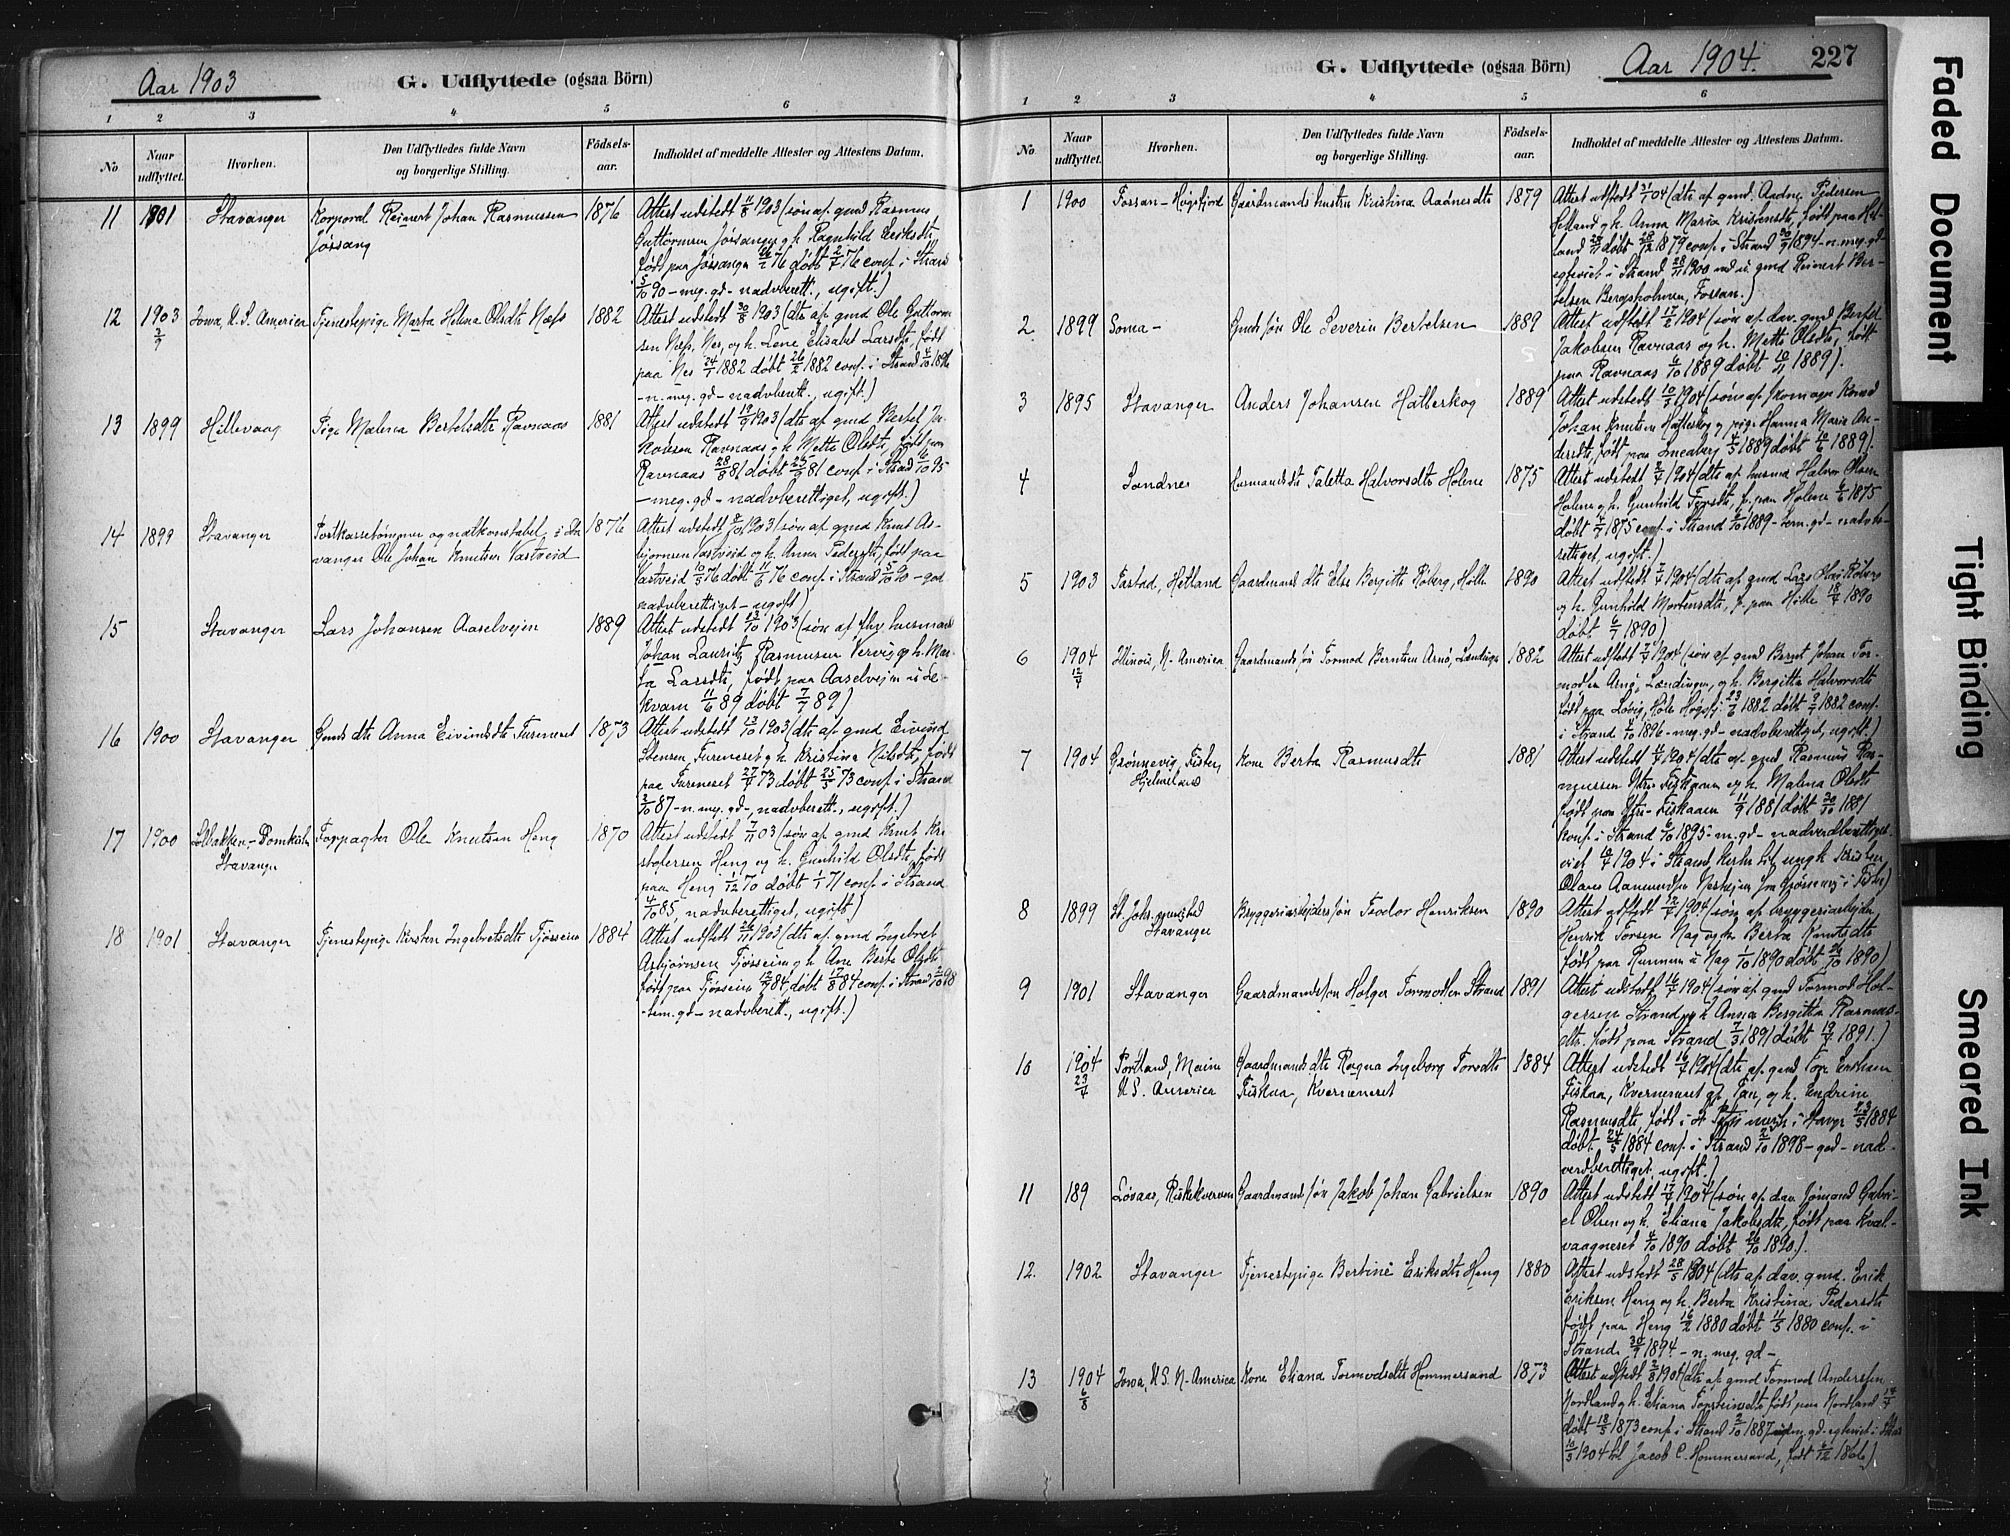 Aar 1903
G. Udflyttede (ogsaa Börn)
1 2 3 4 5 6
No
Naar udflyttet.
Hvorhen.
Den Udflyttedes fulde Navn
og borgerlige Stilling.
Födsels-
aar.
Indholdet af meddelte Attester og Attestens Datum.
11 1901 Stavanger Korporal Reinert Johan Rasmussen 1876 Attest udstedt 11/8 1903 (søn af gmd Rasmus
Jøssang Guttormsen Jøssang og h. Ragnhild Eriksdtr,
født paa Jøssang 76 døbt 2/7 76 conf. i Strand
5/10 90 - meg. gd - nadvberett., ugift.)
12 1903 Iowa, N. S. America Tjenestepige Marta Helena Olsdtr Næss 1882 Attest udstedt 30/8 1903 (dtr af gmd Ole Guttorm-
sen Næss, Nes, og h. Lene Elisabet Larsdtr, født
paa Nes 24/1 1882 døbt 26/2 1882 conf. i Strand 4/10 1896
- n. meg. gd - nadvberett., ugift.)
13 1899 Hillevaag Pige Malena Bertelsdtr Ravnaas 1881 Attest udstedt 19/9 1903 (dtr af gmd Bertel Ja-
kobsen Ravnaas og h. Mette Olsdtr, født paa
Ravnaas 81 døbt 81 conf. i Strand 95
- meg. gd - nadvberettiget, ugift.)
14 1899 Stavanger Postkassetømmer og natkonstabel i Sta- 1876 Attest udstedt 8/10 1903 (søn af gmd Knut As-
vanger Ole Johan Knutsen Vastveid bjørnsen Vastveid og h. Anna Pedersdtr, født paa
Vastveid 10/5 76 døbt 11/6 76 conf. i Strand 5/10 90 - god
nadvberettiget - ugift)
15 Stavanger Lars Johansen Aaselvejen 1889 Attest udstedt 13/10 1903 (søn af fhv. husmand
Johan Lauritz Rasmussen Vervig og h. Mar-
ta Larsdtr, født paa Aaselvejen u/ Le-
kvam 11/6 89 døbt 7/7 89)
16 1900 Stavanger Gmds dtr Anna Eivindsdtr Fureneset 1873 Attest udstedt 13/10 1903 (dtr af gmd Eivind
Stensen Fureneset og h. Kristina Nilsdtr, født
paa Fureneset 27/4 73 døbt 25/5 73 conf. i Strand
2/10 87 - n. meg. gd -, nadvberett., ugift.)
17 1900 Solbakken - Domkirken Forpagter Ole Knutsen Heng 1870 Attest udstedt 7/11 03 (søn af gmd Knut Kri-
Stavanger stofersen Heng og h. Gunhild Olsdtr, født
paa Heng 1/12 70 døbt 1/1 71 conf. i Strand
4/10 85, nadvberettiget, ugift.)
18 1901 Stavanger Tjenestepige Kirsten Ingebretsdtr Tjøsseim 1884 Attest udstedt 26/11 1903 (dtr af gmd Ingebret
Asbjørnsen Tjøsseim og h. Ane Berte Olsdtr,
født paa Tjøsseim 84, døbt 17/8 84 conf. i Strand 2/10 98
- tem. gd - nadvberett., ugift.)
G. Udflyttede (ogsaa Börn)
Aar 1904.
227
1 2 3 4 5 6
No.
Naar
udflyttet.
Hvorhen.
Den Udflyttedes fulde Navn
og borgerlige Stilling.
Födsels-
aar.
Indholdet af meddelte Attester og Attestens Datum.
1 1900 Fossan - Høgsfjord Gaardmandshustru Kristina Aadnesdtr 1879 Attest udstedt 31/1 04 (dtr af gmd. Aadne Pedersen
Hetland og h. Anna Maria Kristensdtr, født paa Het-
land døbt 1879 conf. i Strand 1894 - n. meg. gd -
egteviet i Strand 1900 med u. gmd Reinert Ber-
telsen Bergsholmen, Fossan.)
2 1899 Soma - Gmds søn Ole Severin Bertelsen 1889 Attest udstedt 17/2 1904 (søn af dav. gmd Bertel
Jakobsen Ravnaas og h. Mette Olsdtr, født
paa Ravnaas 6/10 1889 døbt 10/11 1889).
3 1895 Stavanger Anders Johansen Hatleskog 1889 Attest udstedt 10/3 1904 (søn af skomager
Johan Knutsen Hatleskog og pige Hanna Marie An-
dersdtr, født paa 1889 døbt 1889).
4 Sandnes Husmandsdtr Taletta Halvorsdtr Holene 1875 Attest udstedt 1904 (dtr af husmd Halvor Olsen
Holene og h. Gunhild, f. paa Holene 1875
døbt 1875 conf. i Strand 1889 - tem. gd - nadvbe-
rettiget, ugift.)
5 1903 Tastad, Hetland Gaardmandsdtr Else Bergitte Røberg, Holle 1890 Attest udstedt 1904 (dtr af gmd Lars Røberg
og h. Gunhild Mortensdtr, f. paa Holle 18/4 1890
døbt 6/7 1890)
6 1904 Illinois, N. America Gaardmandssøn Tormod Berntsen Arnø, Lændingen 1882 Attest udstedt 1904 (søn af gmd Bernt Johan Tor-
12/4 modsen Arnø, Lændingen, og h. Bergitta Halvorsdtr
født paa Løvig, Høle Høgsfj. 23/6 1882 døbt 1882 conf.
i Strand 1896 - meg. gd - nadvberettiget, ugift.)
7 1904 Grønnevig, Fister, Kone Berta Rasmusdtr 1881 Attest udstedt 1904 (dtr af gmd Rasmus Ras-
Hjelmeland mussen Ytre Fiskaaen og h. Malena Olsdtr
født paa Ytre-Fiskaaen 11/9 1881 døbt 30/10 1881
konf. i Strand 1895 - m. gd - nadverdberettiget -
viet 1904 i Strands kirke til ungk. Kristen
Olaus Aanundsen fra Grønnevig i Fister)
8 1899 St. Johs. menighed Bryggeriarbeiders søn Teodor Henriksen 1890 Attest udstedt 12/4 1904 (søn af bryggeriarbejder
Stavanger Henrik Torsen Nag og h. Berta Knutsdtr
født paa u/ Nag 1/10 1890 døbt 26/10 1890)
9 1901 Stavanger Gaardmandssøn Holger Tormodsen Strand 1891 Attest udstedt 16/4 1904 (søn af gmd Tormod Hol-
gersen Strand og h. Anna Bergitta Rasmus-
dtr. født paa Strand 7/3 1891 døbt 19/4 1891.)
10 1904 Portland, Maine Gaardmandsdtr Ragna Ingeborg Toresdtr 1884 Attest udstedt 16/4 1904 (dtr af gmd Tore Eriksen
23/4 U.S. America Fiskaa, Kverneneset Fiskaa, Kverneneset gt. Tau, og h. Endrine
Rasmusdtr, født i St. Petri mengh. i Stavgr 1884
døbt 24/5 1884 conf. i Strand 2/10 1898 - gd - nad-
verdberettiget, ugift.)
11 189 Løvaas, Riskekverven Gaardmandssøn Jakob Johan Gabrielsen 1890 Attest udstedt 17/4 1904 (søn af dav. sømand Gabri-
el Olsen og h. Eliana Jakobsdtr, født paa Kval-
vaagneset 4/10 1890 døbt 26/10 1890.)
12. 1902 Stavanger Tjenestepige Bertine Eriksdtr Heng 1880 Attest udstedt 28/5 1904 (dtr af dav. gmd. Erik
Eriksen Heng og h. Berta Kristina Pedersdtr
født paa Heng 16/2 1880 døbt 11/3 1880 conf. i
Strand 30/9 1894 - n. meg. gd -
13 1904 Iowa, U.S. N-America Kone Eliana Tormodsdtr Hommersand 1873 Attest udstedt 1904 (dtr af gmd Tormod Andersen
6/8 Nordland og h. Eliana Torsteinsdtr født paa Nordland
døbt 18/5 1873 conf. i Strand 2/10 1887, gd. egteviet i
1904 til Jacob C. Hommersand, født 1866)
Faded Document
Tight Binding
Smeared Ink